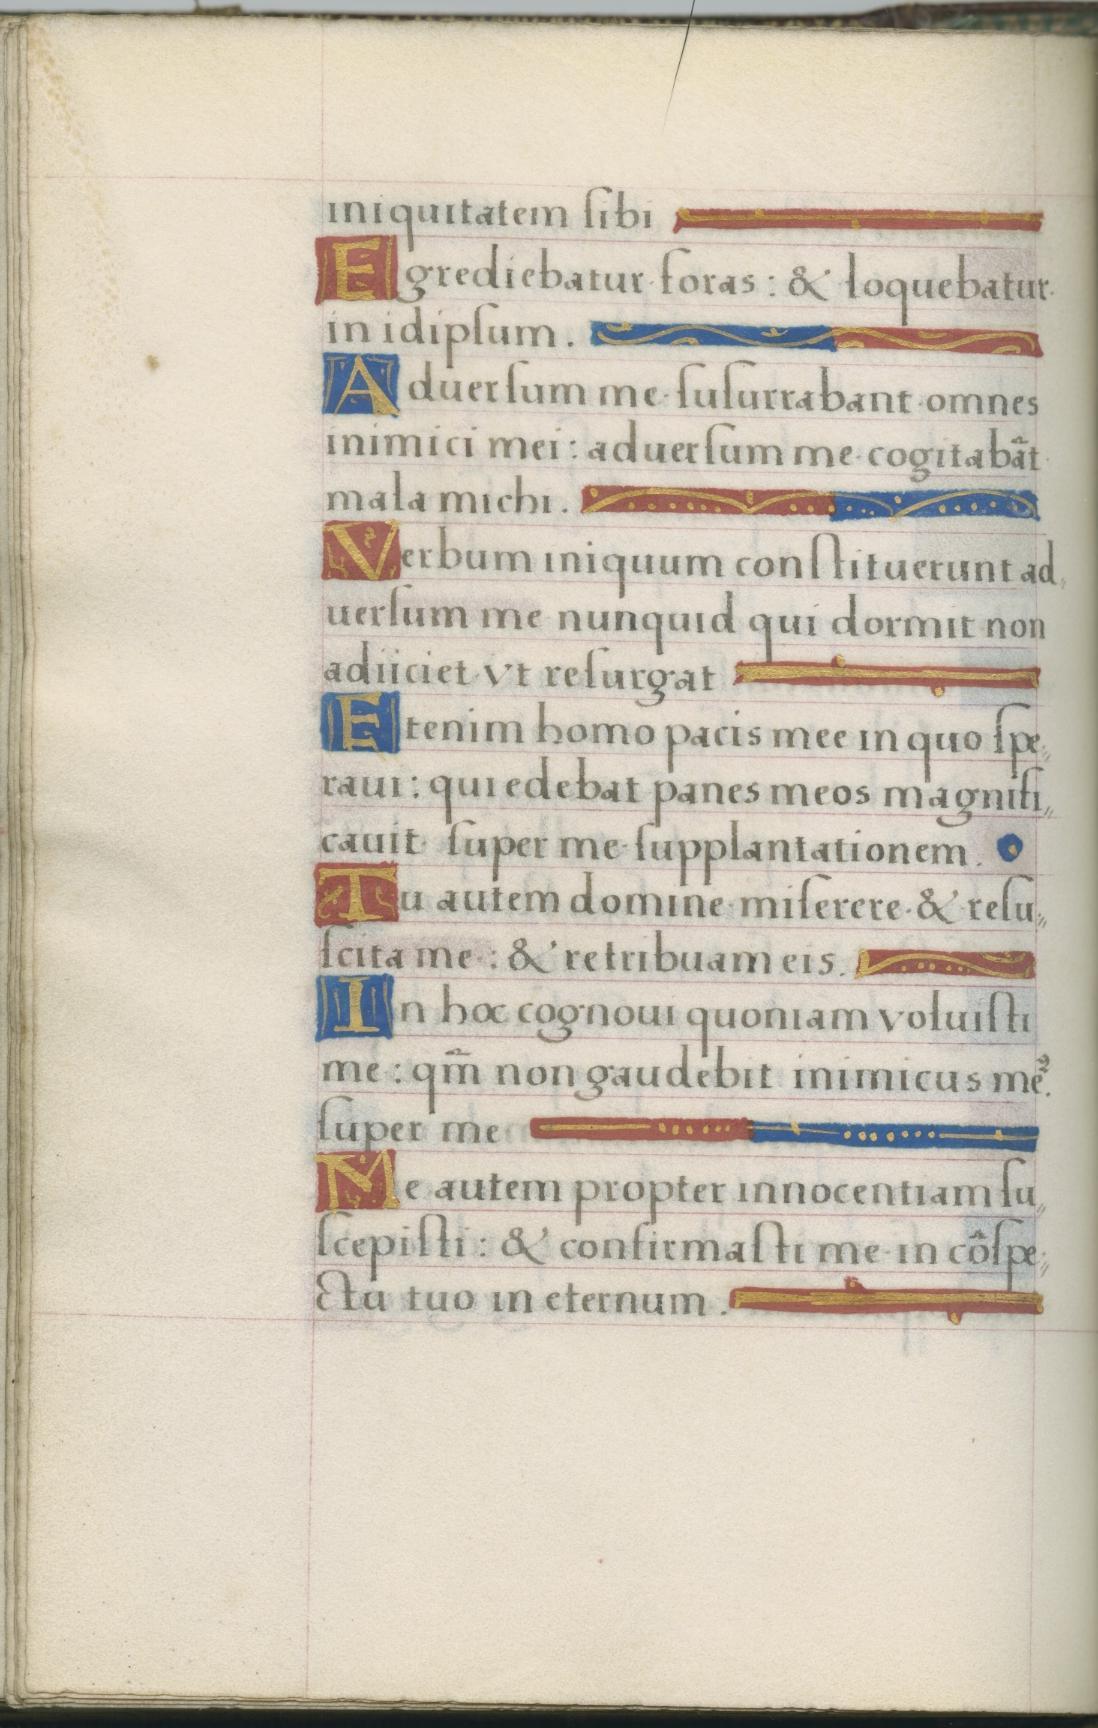 iniquitatem ſibi
Egrediebatur foras : & loquebatur
in idipſum .
Aduerſum me ſuſurrabant omnes
inimici mei : aduerſum me cogitabãt
mala michi .
Verbum iniquum conſtituerunt ad„
uerſum me nunquid qui dormit non
adiiciet vt reſurgat
Etenim homo pacis mee in quo ſpe„
raui : qui edebat panes meos magnifi„
cauit ſuper me ſupplantationem .
Tu autem domine miſerere & reſu„
ſcita me : & retribuam eis .
In hoc cognoui quoniam voluiſti
me : qm̃ non gaudebit inimicus meꝰ.
ſuper me
Me autem propter innocentiam ſu„
ſcepiſti : & confirmaſti me in cõſpe„
ctu tuo in eternum .